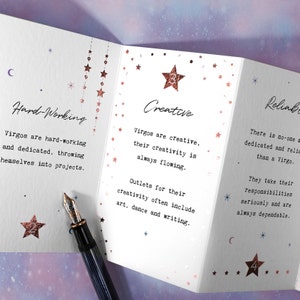 Hard-Working
Virgos are hard-working
and dedicated, throwing
themselves into projects.
2
3
Creative
Virgos are creative,
their creativity is
always flowing.
Outlets for their
creativity often include
art, dance and writing.
There is no-one
dedicated and
than a Virgo.
They take their
responsibilities
seriously and are
always dependable.